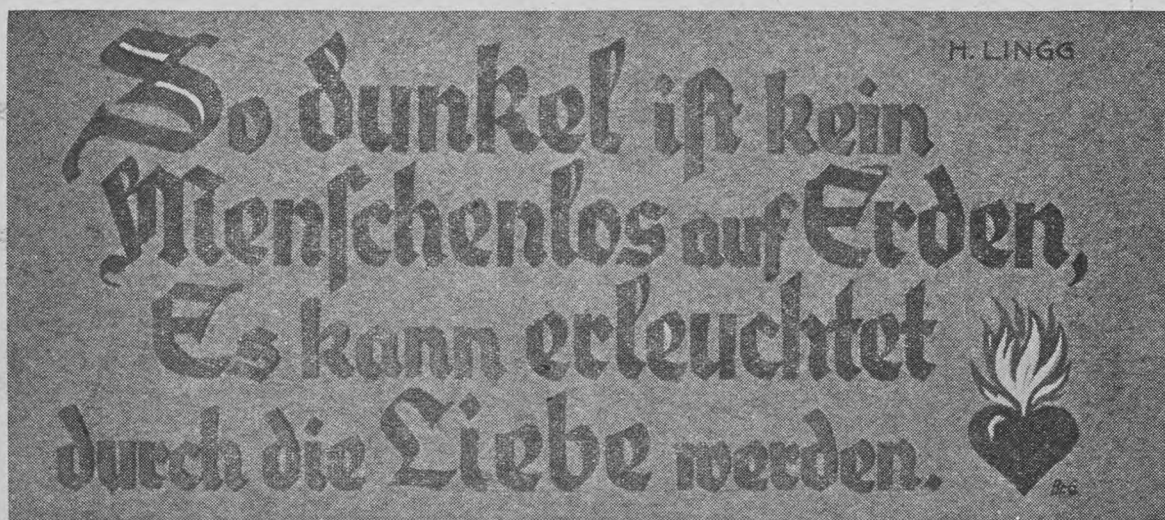 H. LINGG
So dunkel iſt kein
Menſchenlos auf Erden,
Es kann erleuchtet
durch die Liebe werden.